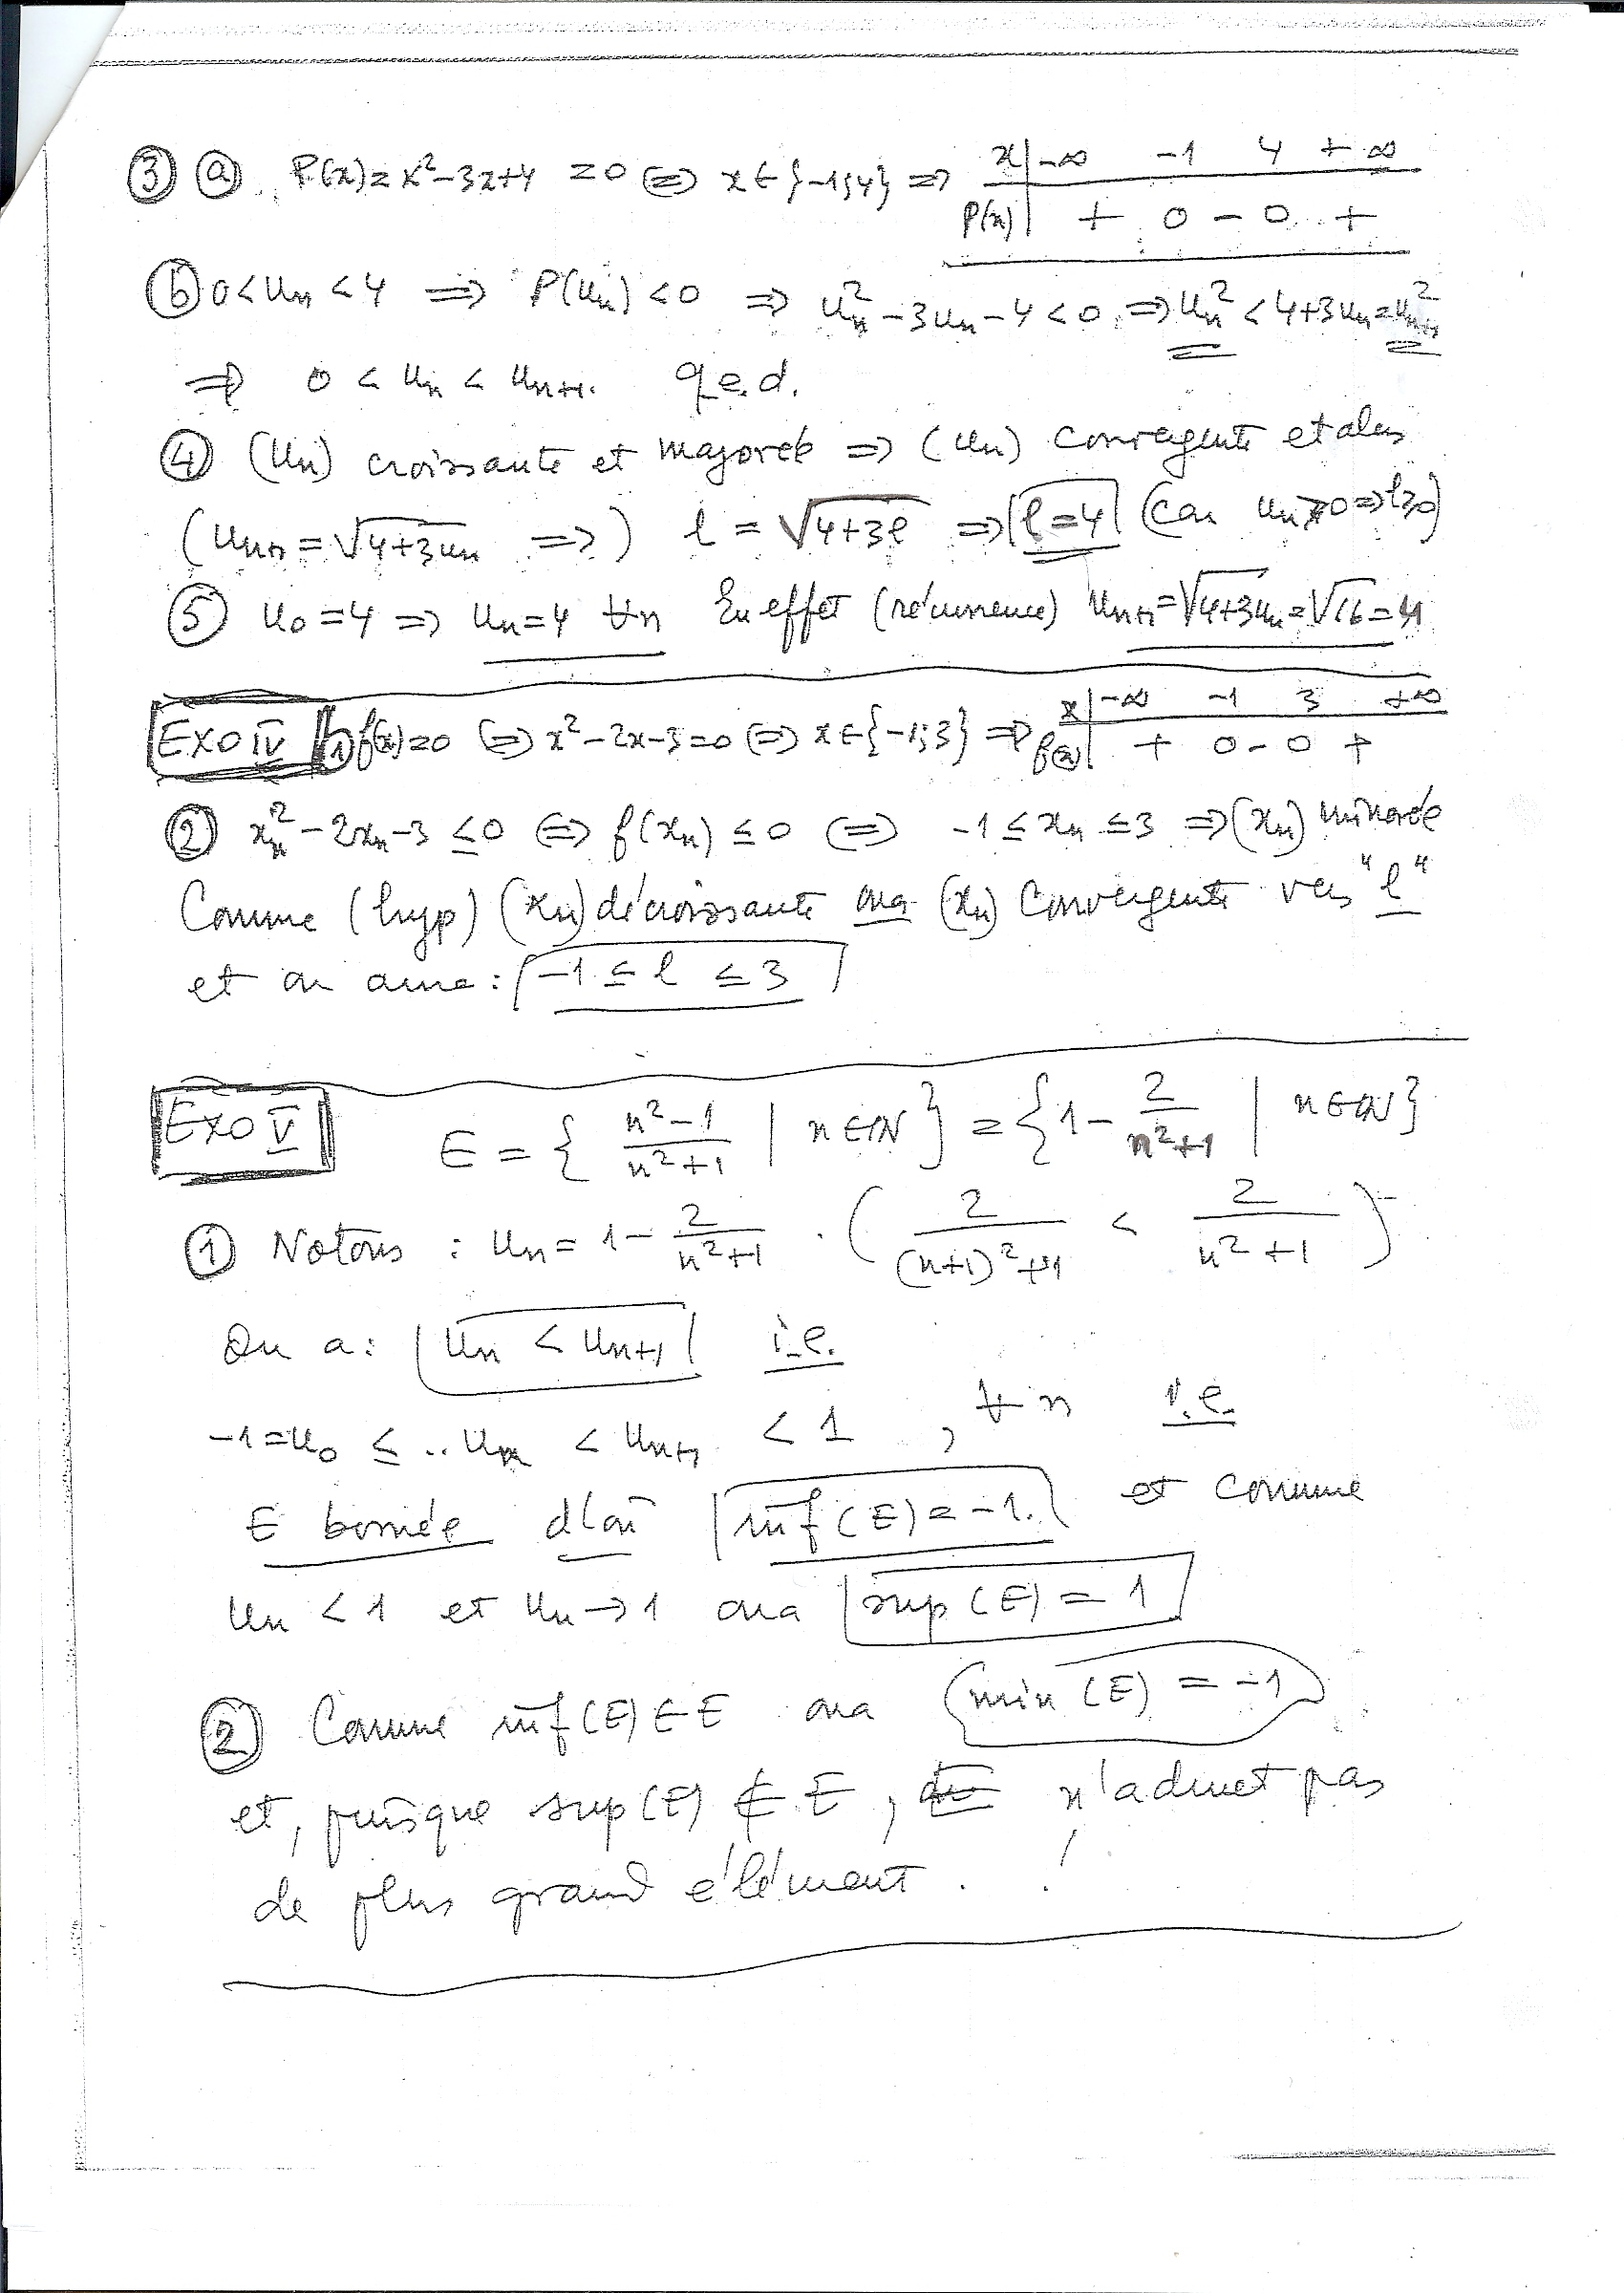 ③ ⓐ P(x)=x²-3x+4 =0 ⇔ x∈{-1;4} ⇒ x | -∞ -1 4 +∞
P(x) | + 0 - 0 +
ⓑ 0<Uₙ<4 ⇒ P(Uₙ)<0 ⇒ Uₙ²-3Uₙ-4<0 ⇒ Uₙ² < 4+3Uₙ = Uₙ₊₁²
⇒ 0 < Uₙ < Uₙ₊₁. q.e.d.
④ (Uₙ) croissante et majorée ⇒ (Uₙ) convergente et alors
(Uₙ₊₁=√(4+3Uₙ) ⇒) l = √(4+3l) ⇒ l=4 (car Uₙ>0 ⇒ l≥0)
⑤ U₀=4 ⇒ Uₙ=4 ∀n En effet (récurrence) Uₙ₊₁=√(4+3Uₙ)=√16=4
EXO IV ① f(x)=0 ⇔ x²-2x-3=0 ⇔ x∈{-1;3} ⇒ x | -∞ -1 3 +∞
f(x) | + 0 - 0 +
② xₙ²-2xₙ-3 ≤0 ⇔ f(xₙ) ≤ 0 ⇔ -1 ≤ xₙ ≤ 3 ⇒ (xₙ) minorée
Comme (hyp) (xₙ) décroissante on a (xₙ) convergente vers "l"
et on aura : -1 ≤ l ≤ 3
EXO V E = { (n²-1)/(n²+1) | n∈ℕ } = { 1 - 2/(n²+1) | n∈ℕ }
① Notons : Uₙ = 1 - 2/(n²+1) . ( 2/((n+1)²+1) < 2/(n²+1) )
On a : Uₙ < Uₙ₊₁ i.e.
-1=U₀ ≤ .. Uₙ < Uₙ₊₁ < 1 , ∀ n i.e.
E bornée d'où inf(E) = -1. et comme
Uₙ < 1 et Uₙ → 1 on a sup(E) = 1
② Comme inf(E) ∈ E on a min(E) = -1
et, puisque sup(E) ∉ E, n'admet pas
de plus grand élément .